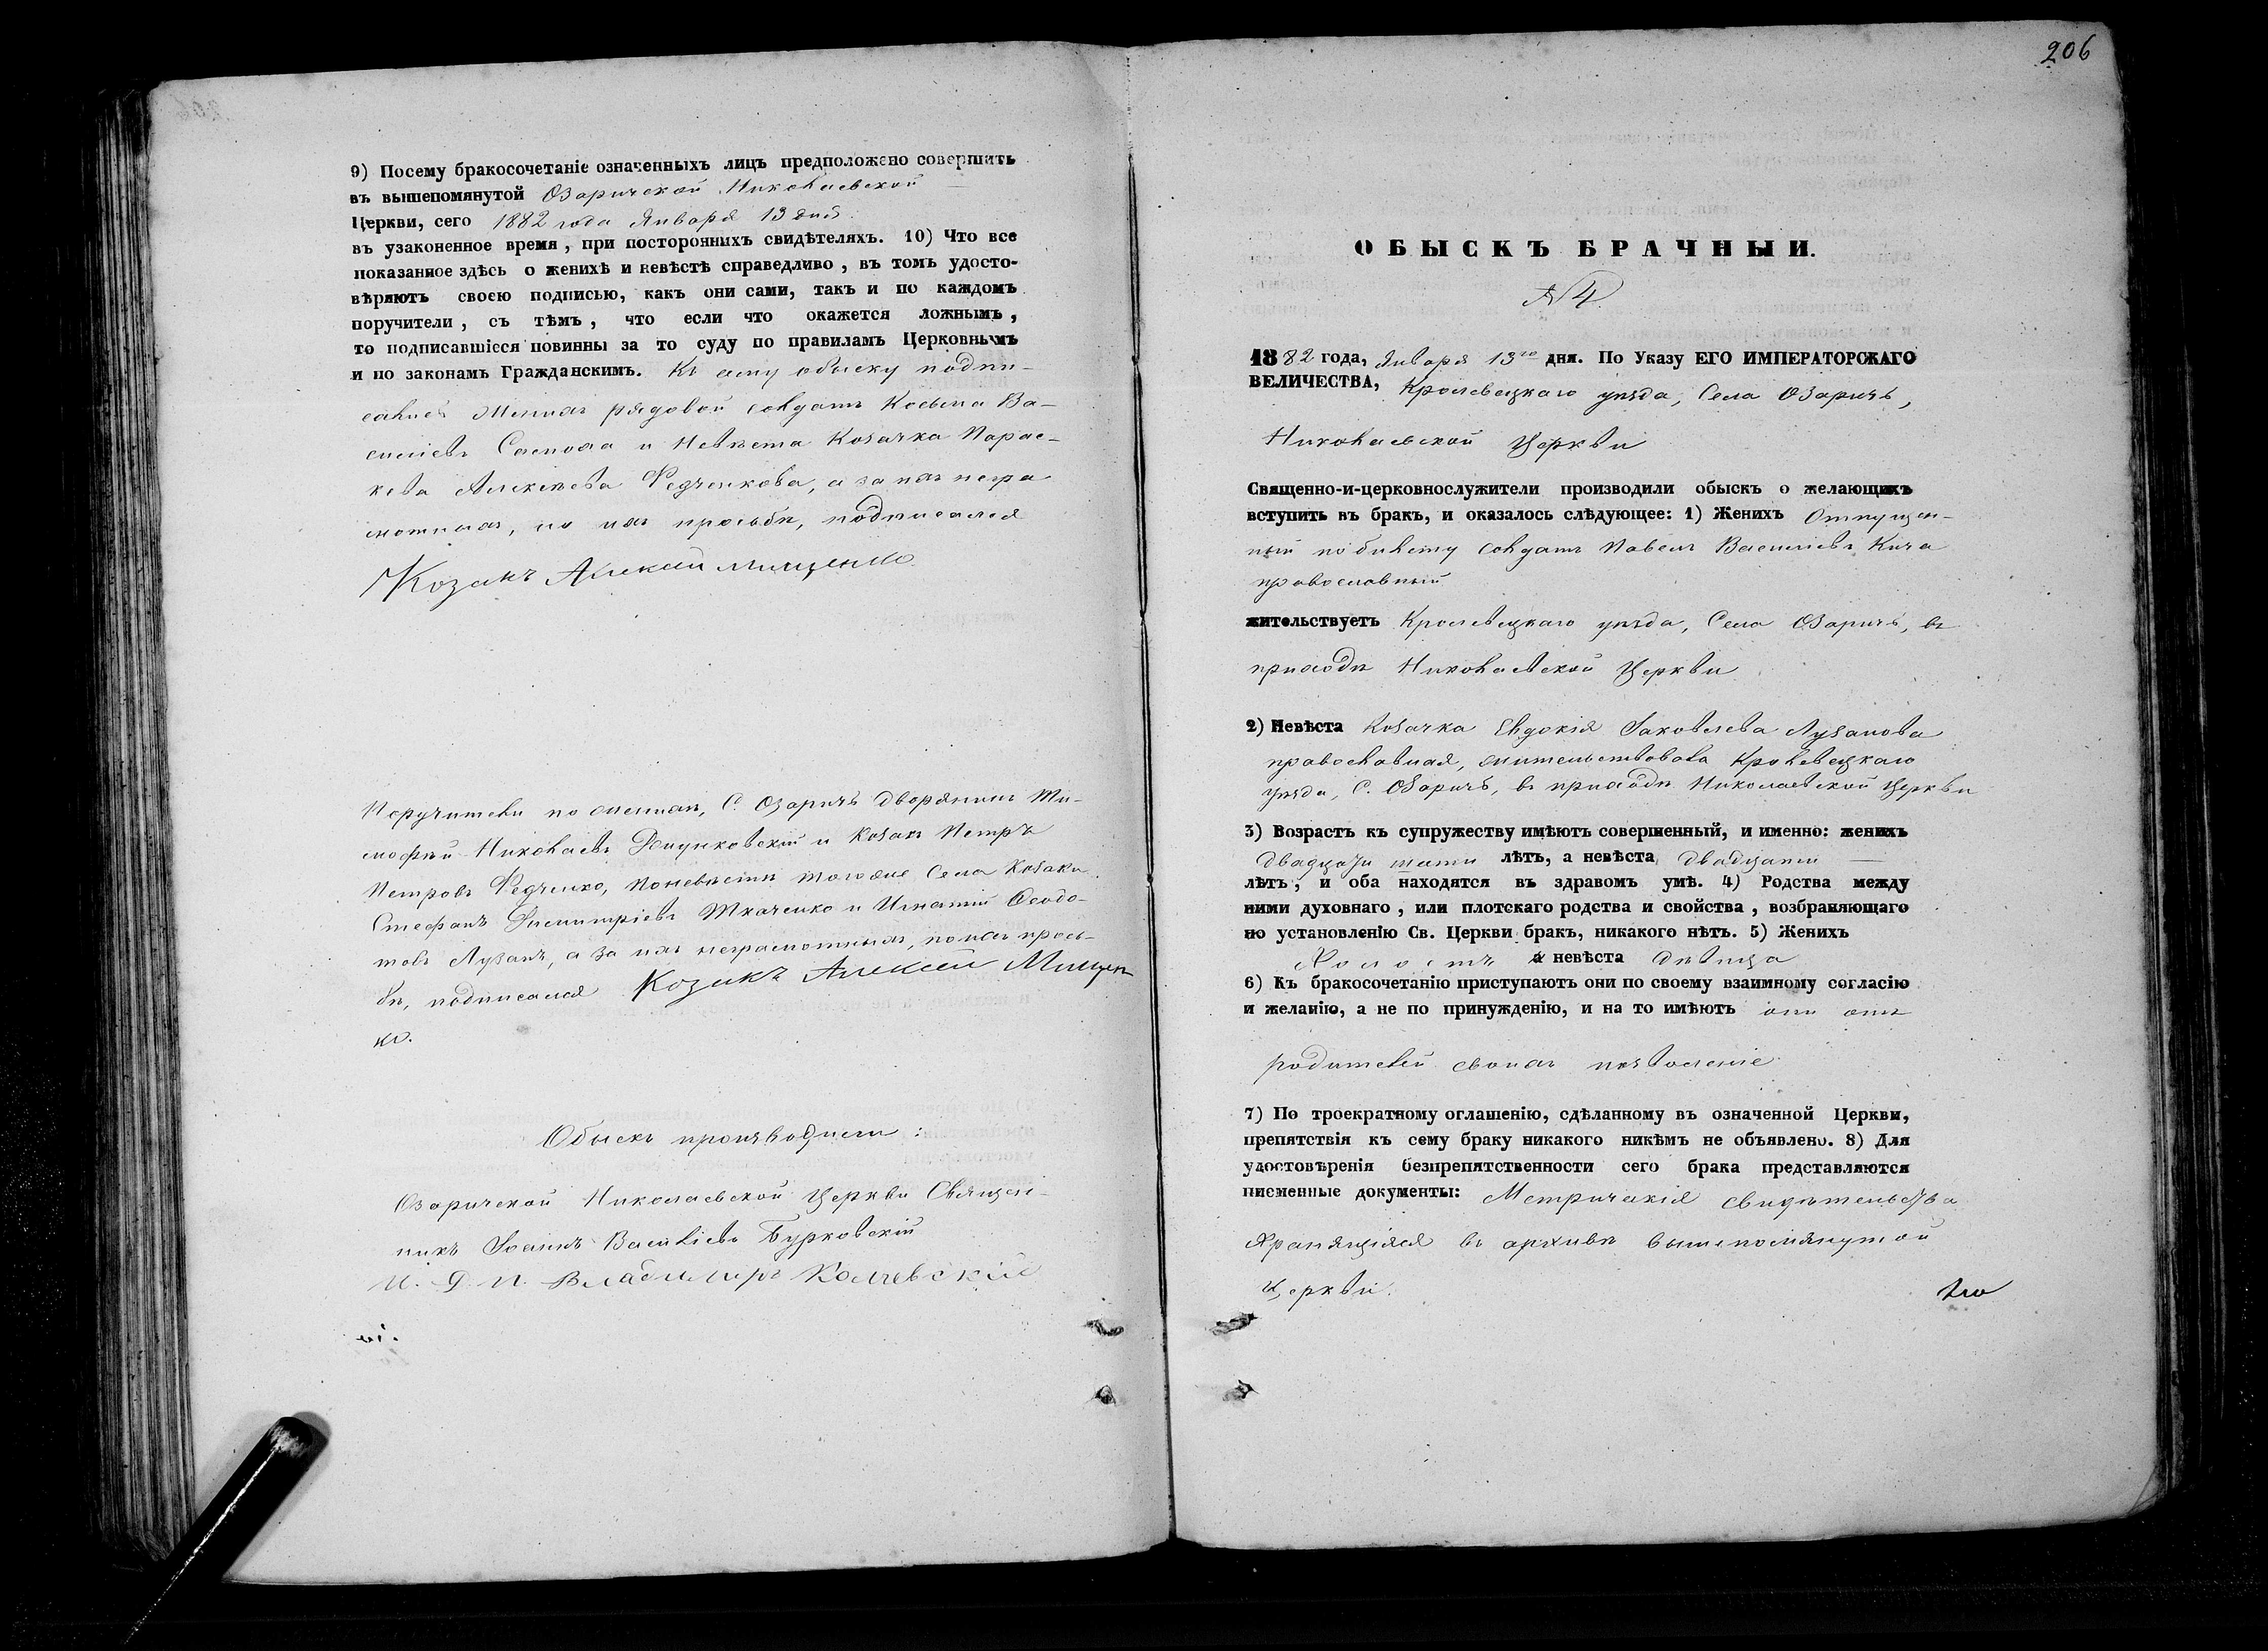 9) Посему бракосочетаніе означенныхъ лицъ предположено совершить
въ вышепомянутой Озаричской Николаевской
Церкви, сего 1882 года Января 13 дня
въ узаконенное время, при посторонныхъ свидѣтеляхъ. 10) Что все
показанное здѣсь о женихѣ и невѣстѣ справедливо, въ томъ удосто-
вѣряютъ своею подписью, какъ они сами, такъ и по каждомъ
поручители, съ тѣмъ, что если что окажется ложнымъ,
то подписавшіеся повинны за то суду по правиламъ Церковнымъ
и по законамъ Гражданскимъ. Къ сему обыску подпи-
сались Женихъ рядовой солдатъ Косьма Ва-
силіевъ и Невѣста Козачка Парас-
кева Алексѣева Федченкова, а за нихъ негра
мотныхъ, по ихъ просьбѣ, подписался
Козакъ Алексѣй Мищенко
Поручители по женихѣ, С. Озаричъ Дворянинъ Ти-
мофѣй Николаевъ и Козакъ Петръ
Петровъ Федченко, по невѣстѣ тогоже Села Козаки
Стефанъ Димитріевъ Ткаченко и Игнатій Ѳеодо-
товъ Лузанъ, а за нихъ неграмотныхъ, по ихъ прось-
бѣ, подписался Козакъ Алексей Мищен
ко.
Обыскъ производили:
Озаричской Николаевской Церкви Священ-
никъ Іоаннъ Василіевъ Бурковскій
И. Д. П. Владимиръ
206
ОБЫСКЪ БРАЧНЫЙ.
№ 4
1882 года, Января 13го дня. По Указу ЕГО ИМПЕРАТОРСКАГО
ВЕЛИЧЕСТВА, Кролевецкаго уѣзда, Села Озаричъ,
Николаевской Церкви
Священно-и-церковнослужители производили обыскъ о желающихъ
вступить въ бракъ, и оказалось слѣдующее: 1) Женихъ Отпущен-
ный по билету солдатъ Павелъ Василіевъ Кича
православный
жительствуетъ Кролевецкаго уѣзда, Села Озаричъ, въ
приходѣ Николаевской Церкви
2) Невѣста Козачка Евдокія Іаковлева Лузанова
православная, жительствовала Кролевецкаго
уѣзда, С. Озаричъ, въ приходѣ Николаевской Церкви
3) Возрастъ къ супружеству имѣютъ совершенный, и именно: женихъ
двадцати пяти лѣтъ, а невѣста двадцати
лѣтъ, и оба находятся въ здравомъ умѣ. 4) Родства между
ними духовнаго, или плотскаго родства и свойства, возбраняющаго
по установленію Св. Церкви бракъ, никакого нѣтъ. 5) Женихъ
Холостъ а невѣста дѣвица
6) Къ бракосочетанію приступаютъ они по своему взаимному согласію
и желанію, а не по принужденію, и на то имѣютъ они отъ
родителей своихъ позволеніе
7) По троекратному оглашенію, сдѣланному въ означенной Церкви,
препятствія къ сему браку никакого никѣмъ не объявлено. 8) Для
удостовѣренія безпрепятственности сего брака представляются
писменные документы: Метрическія свидѣтельства
хранящіяся въ архивѣ вышепомянутой
Церкви.